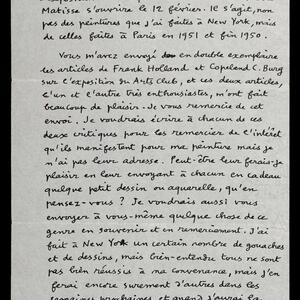 Matisse s'ouvrira le 12 février. Il s'agit, non
pas des peintures que j'ai faites à New York, mais
de celles faites à Paris en 1951 et fin 1950.
Vous m'avez envoyé en double exemplaire
les articles de Frank Holland et Copeland C. Burg
sur l'exposition du Arts Club, et ces deux articles,
l'un et l'autre très enthousiastes, m'ont fait
beaucoup de plaisir. Je vous remercie de cet
envoi. Je voudrais écrire à chacun de ces
deux critiques pour les remercier de l'intérêt
qu'ils manifestent pour ma peinture mais je
n'ai pas leur adresse. Peut-être leur ferais-je
plaisir en leur envoyant à chacun en cadeau
quelque petit dessin ou aquarelle, qu'en
pensez-vous ? Je voudrais aussi vous
envoyer à vous-même quelque chose de ce
genre en souvenir et en remerciement. J'ai
fait à New York un certain nombre de gouaches
et de dessins, mais bien-entendu tous ne sont
pas bien réussis à ma convenance, mais j'en
ferai encore surement d'autres dans les
semaines prochaines et quand j'aurai la